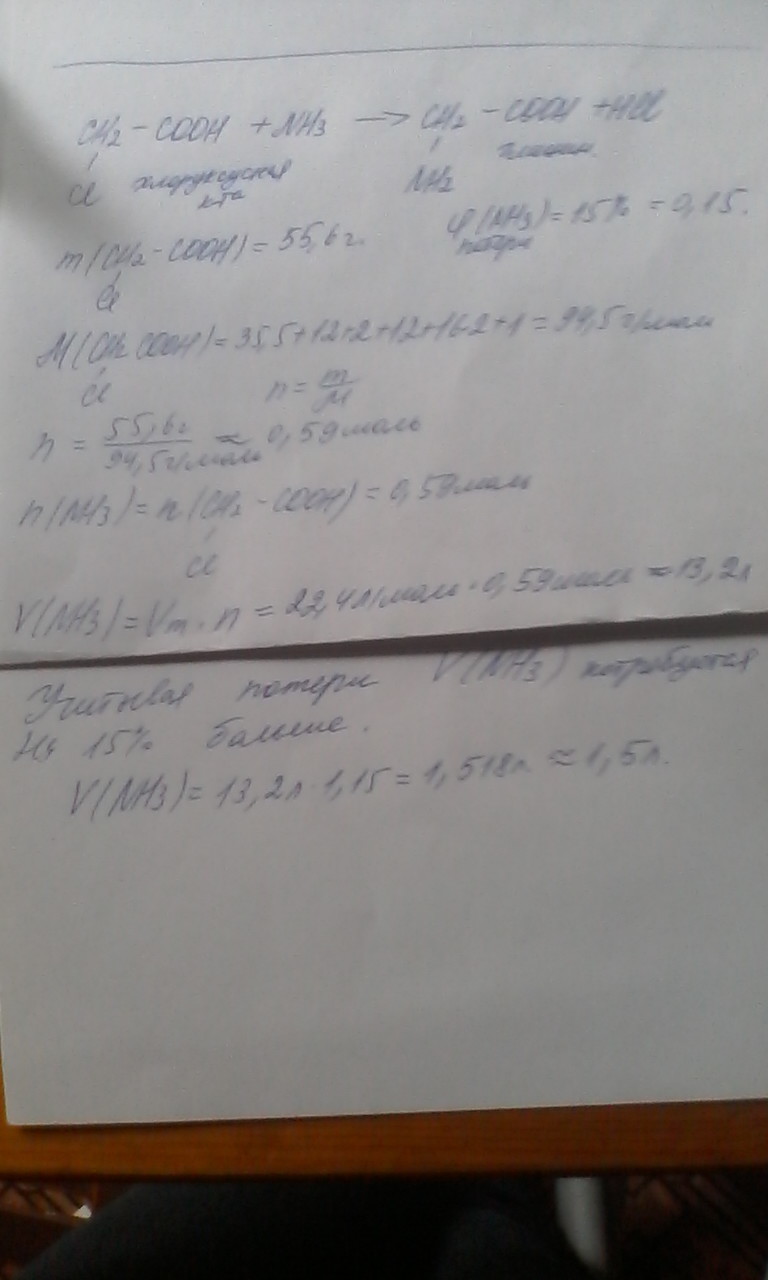 CH2 - COOH + NH3 → CH2 - COOH + HCl
Cl хлоруксусная к-та NH2 глицин.
m(CH2-COOH) = 55,6 г. φ(NH3) = 15% = 0,15.
Cl потери
M(CH2 COOH) = 35,5+12+2+12+16·2+1 = 94,5 г/моль
Cl n = m/M
n = 55,6 г / 94,5 г/моль ≈ 0,59 моль
n(NH3) = n(CH2 - COOH) = 0,59 моль
Cl
V(NH3) = Vm · n = 22,4 л/моль · 0,59 моль ≈ 13,2 л
Учитывая потери V(NH3) потребуется
на 15% больше.
V(NH3) = 13,2 л · 1,15 = 1,518 л ≈ 1,5 л.